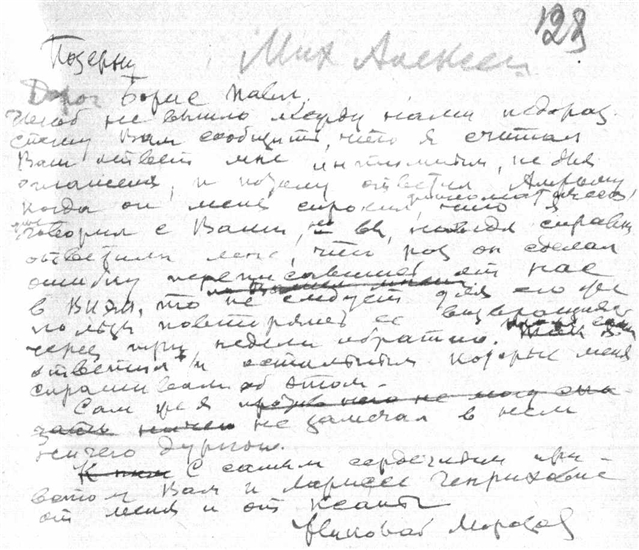 128
Позерну
Мих Алексеи
Дорог Борис Павл.
Чтоб не вышло между нами недораз
Вам сообщить, что я считал
Ваш ответ мне интимным, не для
оглашения, и потому ответил
когда он меня спросил, что я
говорил с Вами, и Вы, наводя справки
ответили мне, что раз он сделал
ошибку от нас
в ВИЭМ, то не следует для его же
пользы повторять ее возвращаясь
через три недели обратно.
ответил и остальным которые меня
спрашивали об этом.
Сам же я
не замечал в нем
ничего дурного.
С самым сердечным при
ветом Вам и Ларисе Генриховне
от меня и от Ксаны
Николай Морозов